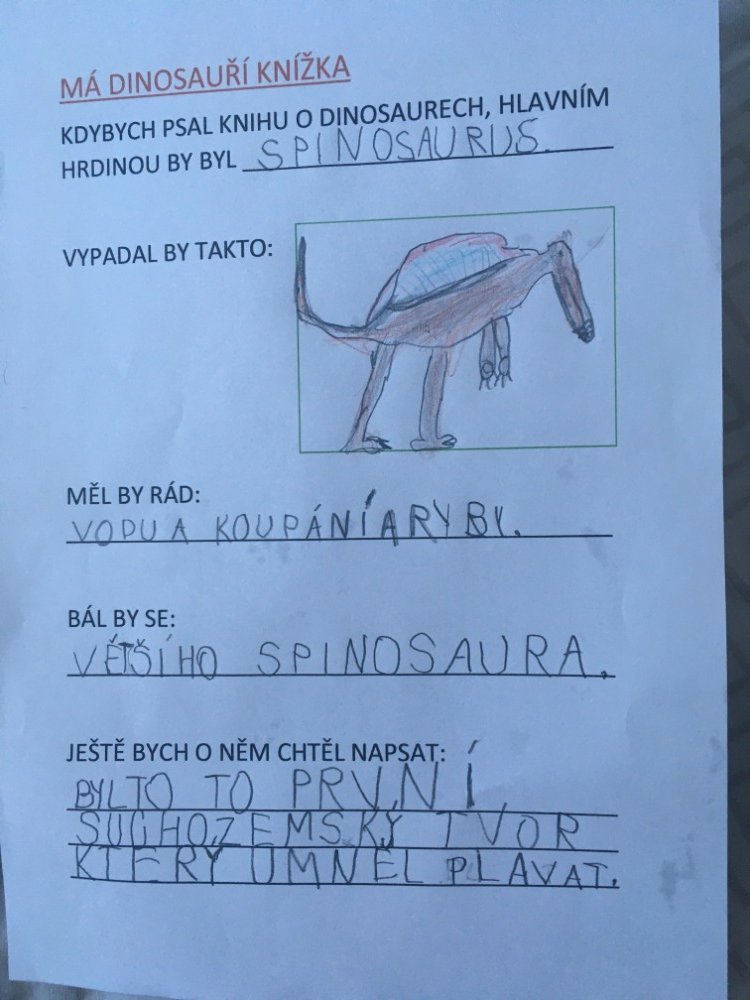 MÁ DINOSAUŘÍ KNÍŽKA
KDYBYCH PSAL KNIHU O DINOSAURECH, HLAVNÍM
HRDINOU BY BYL SPINOSAURUS.
VYPADAL BY TAKTO:
MĚL BY RÁD:
VODU A KOUPÁNÍ A RYBY.
BÁL BY SE:
VĚTŠÍHO SPINOSAURA.
JEŠTĚ BYCH O NĚM CHTĚL NAPSAT:
BYLTO TO PRVNÍ
SUCHOZEMSKÝ TVOR
KTERÝ UMNĚL PLAVAT.